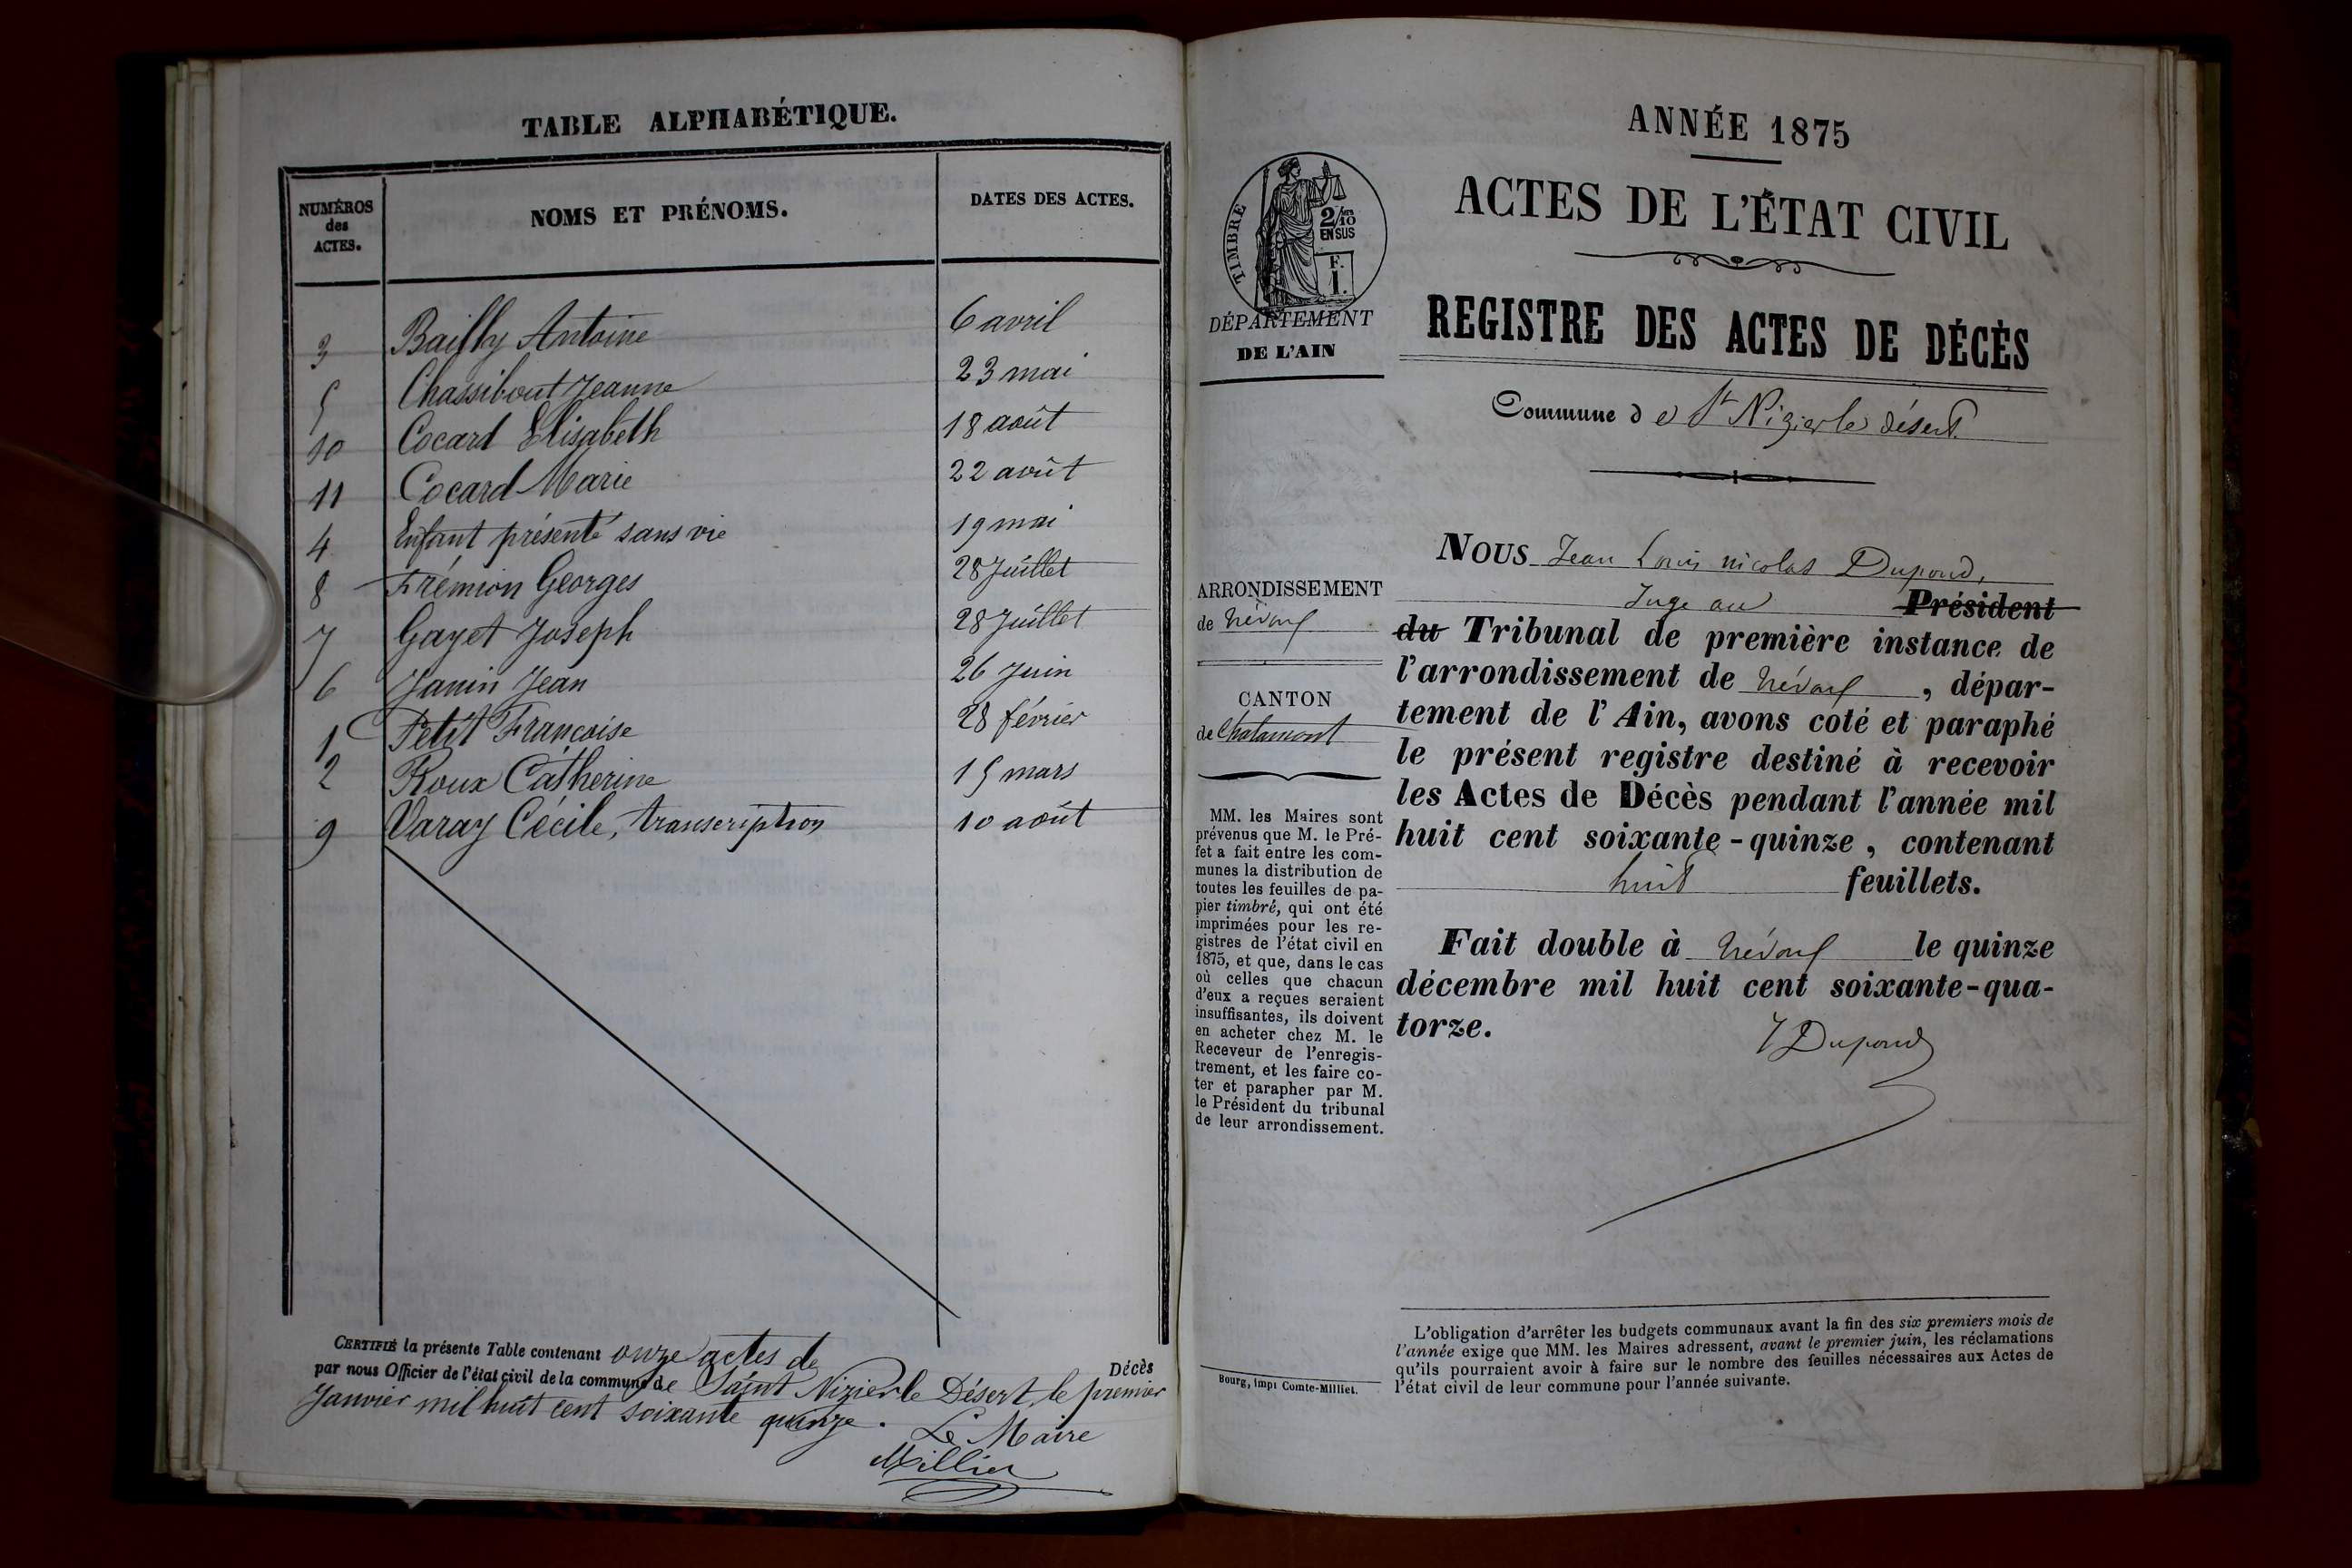 TABLE ALPHABÉTIQUE.
NUMÉROS
des
ACTES.
NOMS ET PRÉNOMS.
DATES DES ACTES.
3 Bailly Antoine 6 avril
5 Chassibout Jeanne 23 mai
10 Cocard Elisabeth 18 août
11 Cocard Marie 22 août
4 Enfant présenté sans vie 19 mai
8 Frémion Georges 28 Juillet
7 Gayet Joseph 28 Juillet
6 Janin Jean 26 Juin
1 Petit Françoise 28 février
2 Roux Catherine 15 mars
9 Varay Cécile, transcription 10 août
CERTIFIÉ la présente Table contenant onze actes de Décès
par nous Officier de l'état civil de la commune de Saint Nizier le Désert, le premier
Janvier mil huit cent soixante quinze.
Le Maire
Millier
ANNÉE 1875
ACTES DE L'ÉTAT CIVIL
REGISTRE DES ACTES DE DÉCÈS
Commune de St Nizier le désert
TIMBRE
2/10 EN SUS
F.
1.
DÉPARTEMENT
DE L'AIN
ARRONDISSEMENT
de Trévoux
CANTON
de Chalamont
MM. les Maires sont
prévenus que M. le Pré-
fet a fait entre les com-
munes la distribution de
toutes les feuilles de pa-
pier timbré, qui ont été
imprimées pour les re-
gistres de l'état civil en
1875, et que, dans le cas
où celles que chacun
d'eux a reçues seraient
insuffisantes, ils doivent
en acheter chez M. le
Receveur de l'enregis-
trement, et les faire co-
ter et parapher par M.
le Président du tribunal
de leur arrondissement.
Bourg, imp. Comte-Milliet.
NOUS Jean Louis nicolas Dupond,
Juge au Président
du Tribunal de première instance de
l'arrondissement de Trévoux, dépar-
tement de l'Ain, avons coté et paraphé
le présent registre destiné à recevoir
les Actes de Décès pendant l'année mil
huit cent soixante-quinze, contenant
huit feuillets.
Fait double à Trévoux le quinze
décembre mil huit cent soixante-qua-
torze.
Dupond
L'obligation d'arrêter les budgets communaux avant la fin des six premiers mois de
l'année exige que MM. les Maires adressent, avant le premier juin, les réclamations
qu'ils pourraient avoir à faire sur le nombre des feuilles nécessaires aux Actes de
l'état civil de leur commune pour l'année suivante.